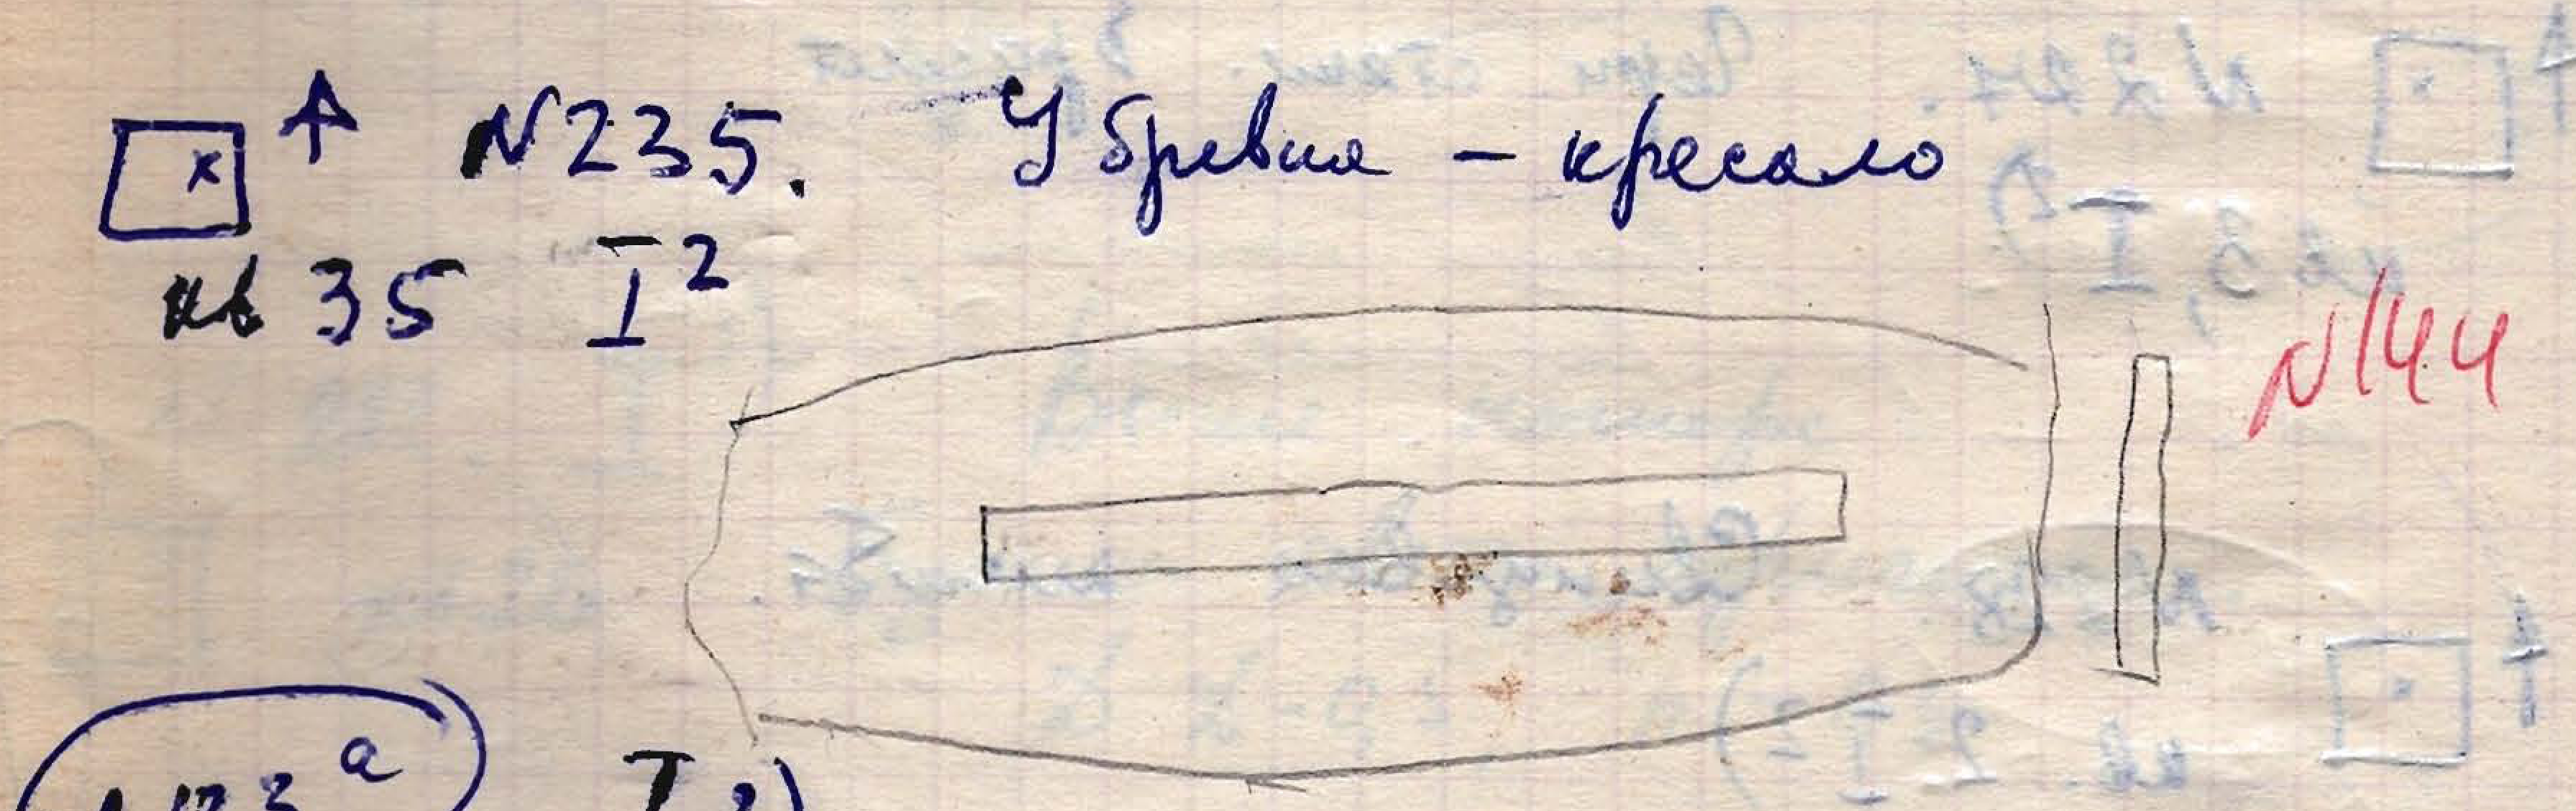 N235. У бревна - кресало
кв 35 I²
N144